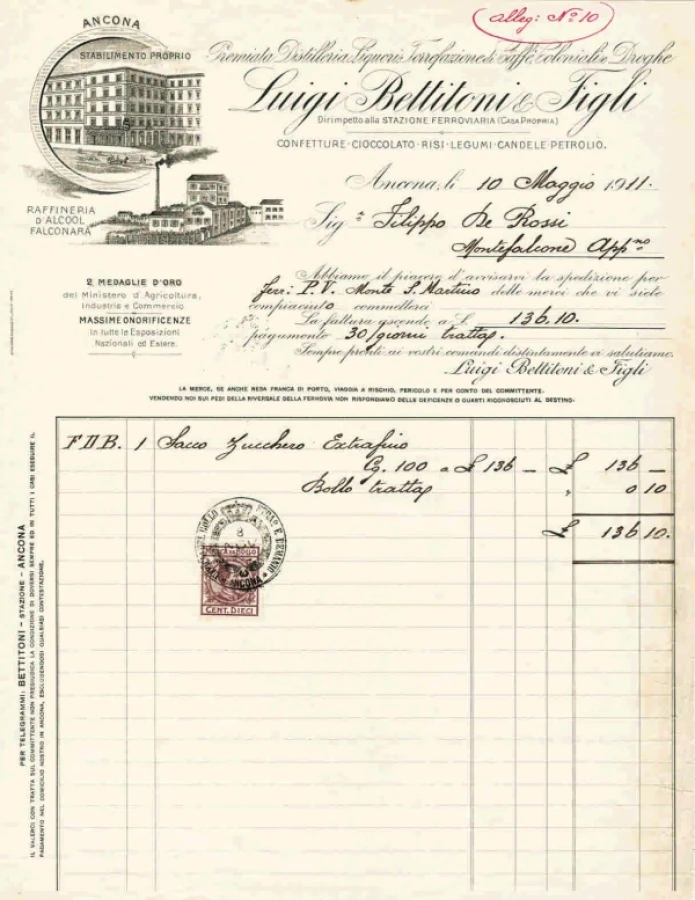 alleg: No 10
ANCONA
STABILIMENTO PROPRIO
Premiata Distilleria Liquori, Torrefazione di Caffè, Coloniali e Droghe
Luigi Bettitoni & Figli
Dirimpetto alla STAZIONE FERROVIARIA (CASA PROPRIA)
CONFETTURE - CIOCCOLATO - RISI - LEGUMI - CANDELE - PETROLIO.
RAFFINERIA
D'ALCOOL
FALCONARA
Ancona, li 10 Maggio 1911.
Sig. Filippo De Rossi
Montefalcone Appno
2 MEDAGLIE D'ORO
del Ministero d'Agricoltura,
Industria e Commercio
MASSIME ONORIFICENZE
in tutte le Esposizioni
Nazionali ed Estere.
Abbiamo il piacere d'avvisarvi la spedizione per
Ferr: P.V. Monte S. Martino delle merci che vi siete
compiaciuto commetterci
La fattura ascende a L. 136.10.
pagamento 30/giorni tratta.
Sempre pronti ai vostri comandi distintamente vi salutiamo.
Luigi Bettitoni & Figli
LA MERCE, SE ANCHE RESA FRANCA DI PORTO, VIAGGIA A RISCHIO, PERICOLO E PER CONTO DEL COMMITTENTE.
VENDENDO NOI SUI PESI DELLA RIVERSALE DELLA FERROVIA NON RISPONDIAMO DELLE DEFICENZE O GUASTI RICONOSCIUTI AL DESTINO.
FDB. 1 Sacco Zucchero Extrafino
G. 100 a £ 136 — £ 136 —
Bollo tratta " 0 10
£ 136 10.
8
ANCONA
CENT. DIECI
PER TELEGRAMMI: BETTITONI - STAZIONE - ANCONA
IL VALERCI CON TRATTA SUL COMMITTENTE NON PREGIUDICA LA CONDIZIONE DI DOVERSI SEMPRE ED IN TUTTI I CASI ESEGUIRE IL
PAGAMENTO NEL DOMICILIO NOSTRO IN ANCONA, ESCLUDENDOSI QUALSIASI CONTESTAZIONE.